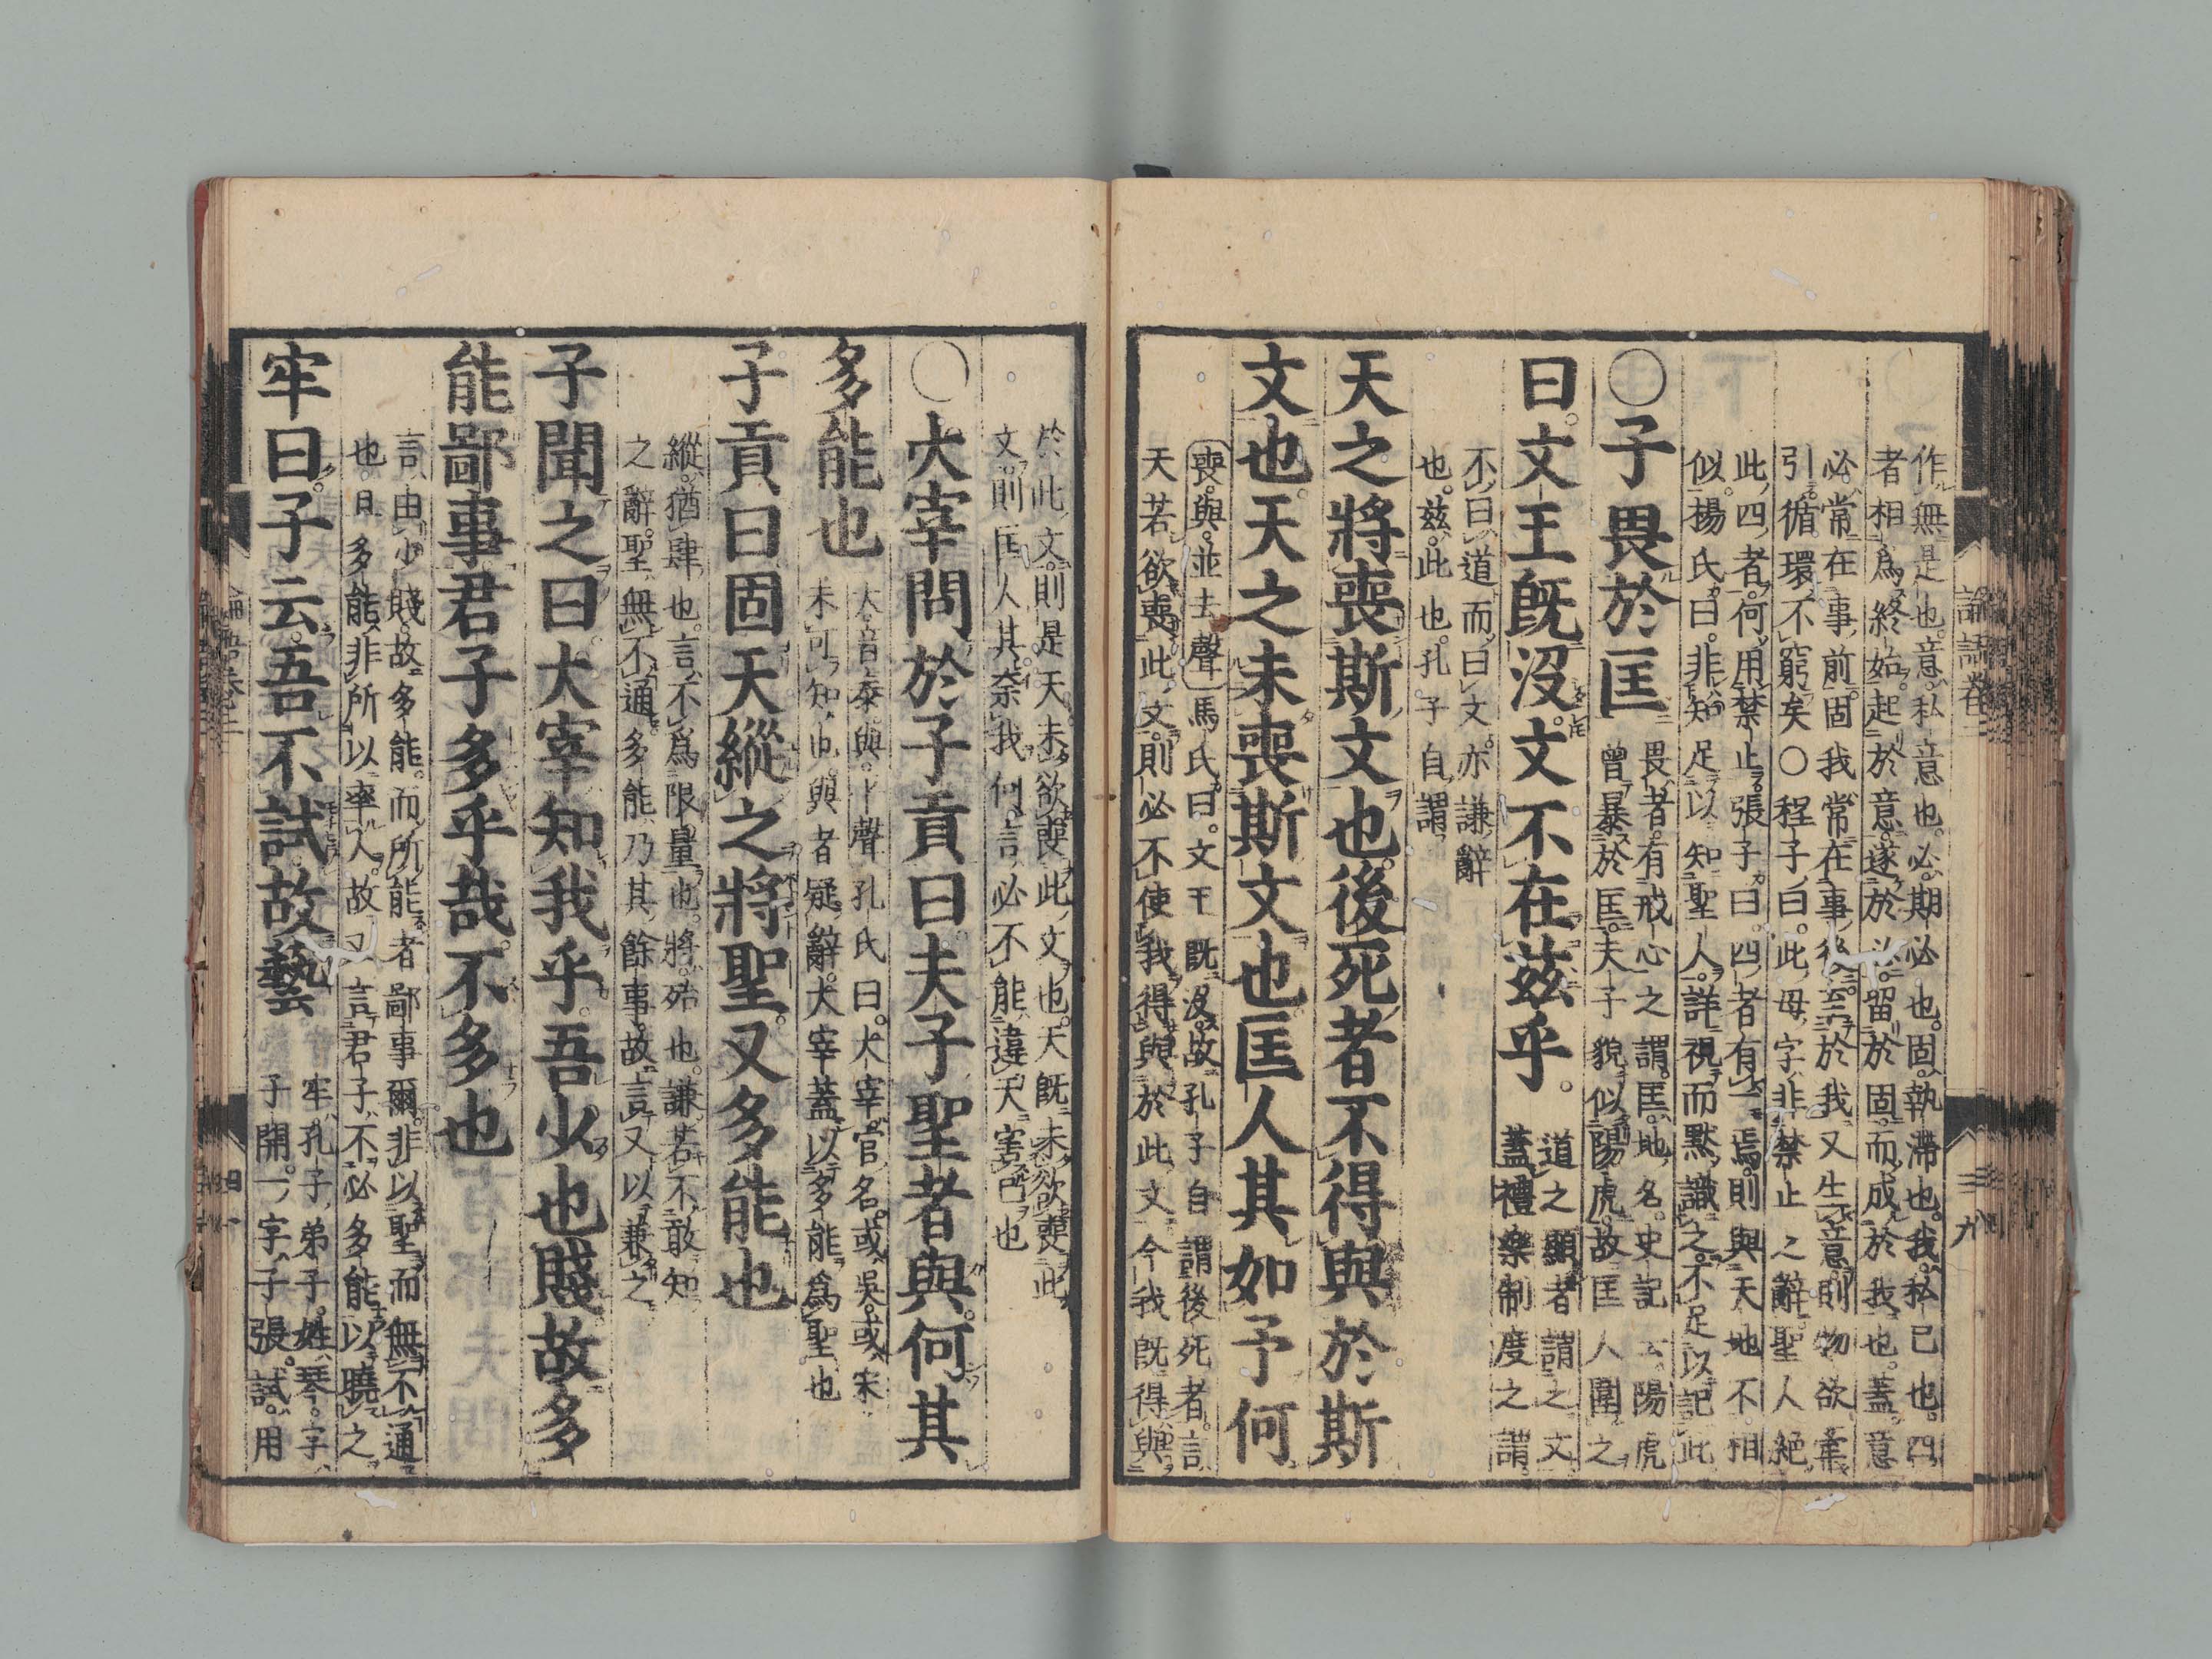 作無是也。意。私意也。必。期必也。固。執滯也。我。私己也。四
者相爲終始。起於意。遂於必。留於固。而成於我也。蓋意
必常在事前。固我常在事後。至於我又生意。則物欲牽
引循環不窮矣○程子曰。此毋字。非禁止之辭。聖人絶
此四者。何用禁止。張子曰。四者有一焉。則與天地不相
似。揚氏曰。非知足以知聖人。詳視而默識之。不足以記此
○子畏於匡
畏者。有戒心之謂。匡。地名。史記云。陽虎
曾暴於匡。夫子貌似陽虎。故匡人圍之
曰。文王既沒。文不在茲乎。
道之顯者謂之文。
蓋禮樂制度之謂。
不曰道而曰文。亦謙辭
也。茲。此也。孔子自謂
天之將喪斯文也。後死者不得與於斯
文也。天之未喪斯文也。匡人其如予何
喪。與。並去聲 馬氏曰。文王既沒。故孔子自謂後死者。言
天若欲喪此文。則必不使我得與於此文。今我既得與
論語卷三
九
於此文。則是天未欲喪此文也。天既未欲喪此
文。則匡人其奈我何。言必不能違天害己也
○大宰問於子貢曰夫子聖者與。何其
多能也
大音泰與平聲 孔氏曰。大宰。官名。或吳。或宋
未可知也。與者疑辭。大宰蓋以多能爲聖也
子貢曰固天縱之將聖。又多能也
縱。猶肆也。言不爲限量也。將。殆也。謙若不敢知
之辭。聖無不通。多能乃其餘事。故言又以兼之
子聞之曰大宰知我乎。吾少也賤。故多
能鄙事君子多乎哉。不多也
言由少賤。故多能。而所能者鄙事爾。非以聖而無不通
也。且多能非所以率人。故又言君子不必多能以曉之
牢曰。子云。吾不試。故藝
牢。孔子弟子。姓琴。字
子開。一字子張。試。用